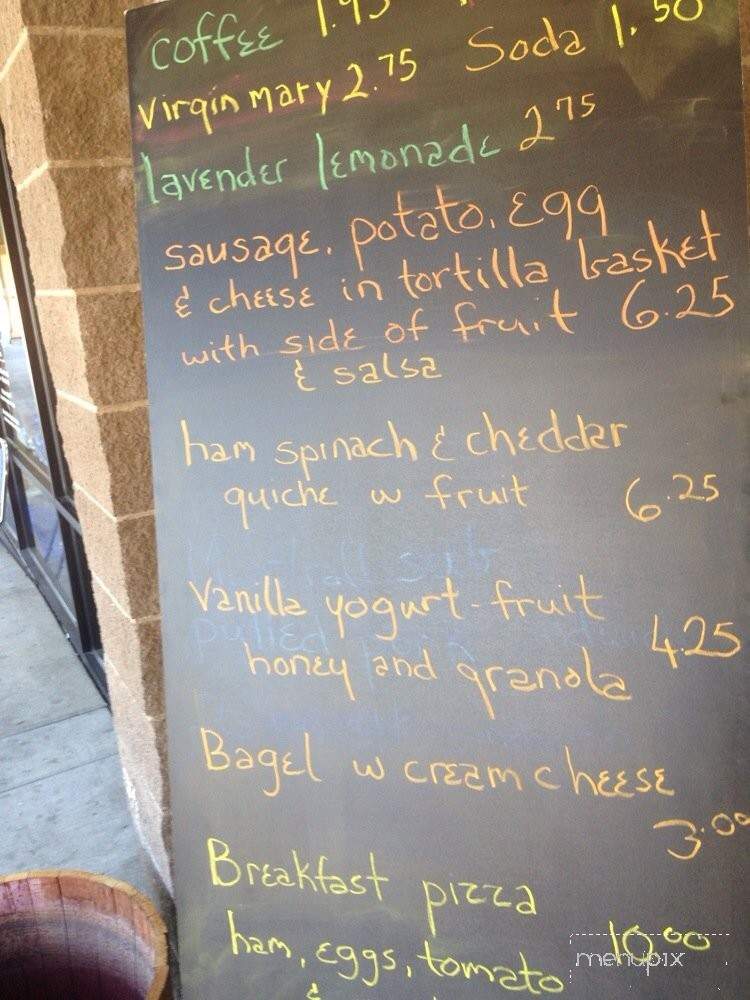 coffee 1.95
Soda 1.50
virgin mary 2.75
lavender lemonade 2 75
sausage, potato, egg
& cheese in tortilla basket
with side of fruit 6.25
& salsa
ham spinach & cheddar
quiche w fruit 6.25
vanilla yogurt-fruit
honey and granola 4.25
Bagel w cream cheese
3.00
Breakfast pizza
ham, eggs, tomato 10.00
&
menupix